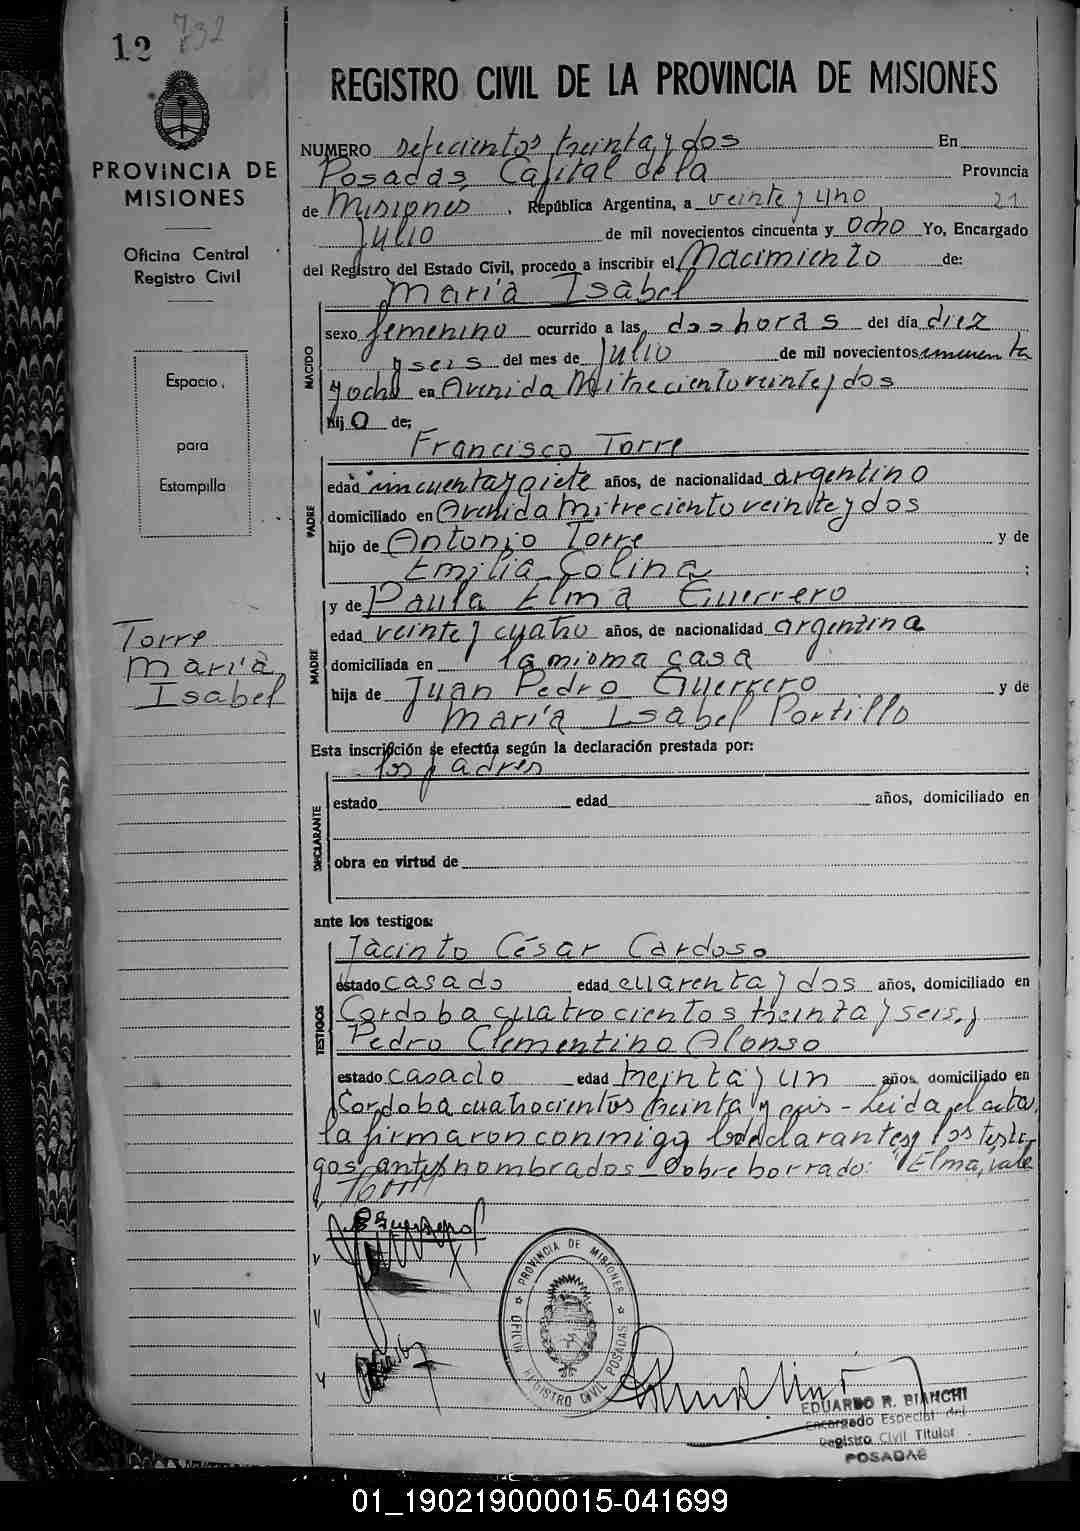 12 732
PROVINCIA DE
MISIONES
Oficina Central
Registro Civil
Espacio
para
Estampilla
Torre
María
Isabel
REGISTRO CIVIL DE LA PROVINCIA DE MISIONES
NUMERO setecientos treinta y dos En
Posadas, Capital de la Provincia
de Misiones, República Argentina, a veinte y uno 21
Julio de mil novecientos cincuenta y ocho Yo, Encargado
del Registro del Estado Civil, procedo a inscribir el Nacimiento de:
María Isabel
NACIDO
sexo femenino ocurrido a las dos horas del día diez
y seis del mes de Julio de mil novecientos cincuenta
y ocho en Avenida Mitre ciento veinte y dos
hij a de:
Francisco Torre
PADRE
edad cincuenta y siete años, de nacionalidad argentino
domiciliado en Avenida Mitre ciento veinte y dos
hijo de Antonio Torre y de
Emilia Colina ;
y de Paula Elma Guerrero
MADRE
edad veinte y cuatro años, de nacionalidad argentina
domiciliada en la misma casa
hija de Juan Pedro Guerrero y de
María Isabel Portillo
Esta inscripción se efectúa según la declaración prestada por:
los padres
DECLARANTE
estado edad años, domiciliado en
obra en virtud de
ante los testigos:
Jacinto César Cardoso
TESTIGOS
estado casado edad cuarenta y dos años, domiciliado en
Cordoba cuatrocientos treinta y seis, y
Pedro Clementino Alonso
estado casado edad treinta y un años, domiciliado en
Cordoba cuatrocientos treinta y seis - Leida el acta,
la firmaron conmigo los declarantes y los testi-
gos antes nombrados - Sobre borrado: "Elma, vale
PROVINCIA DE MISIONES
REGISTRO CIVIL POSADAS
EDUARDO R. BIANCHI
Encargado Especial del
Registro Civil Titular
POSADAS
01_190219000015-041699